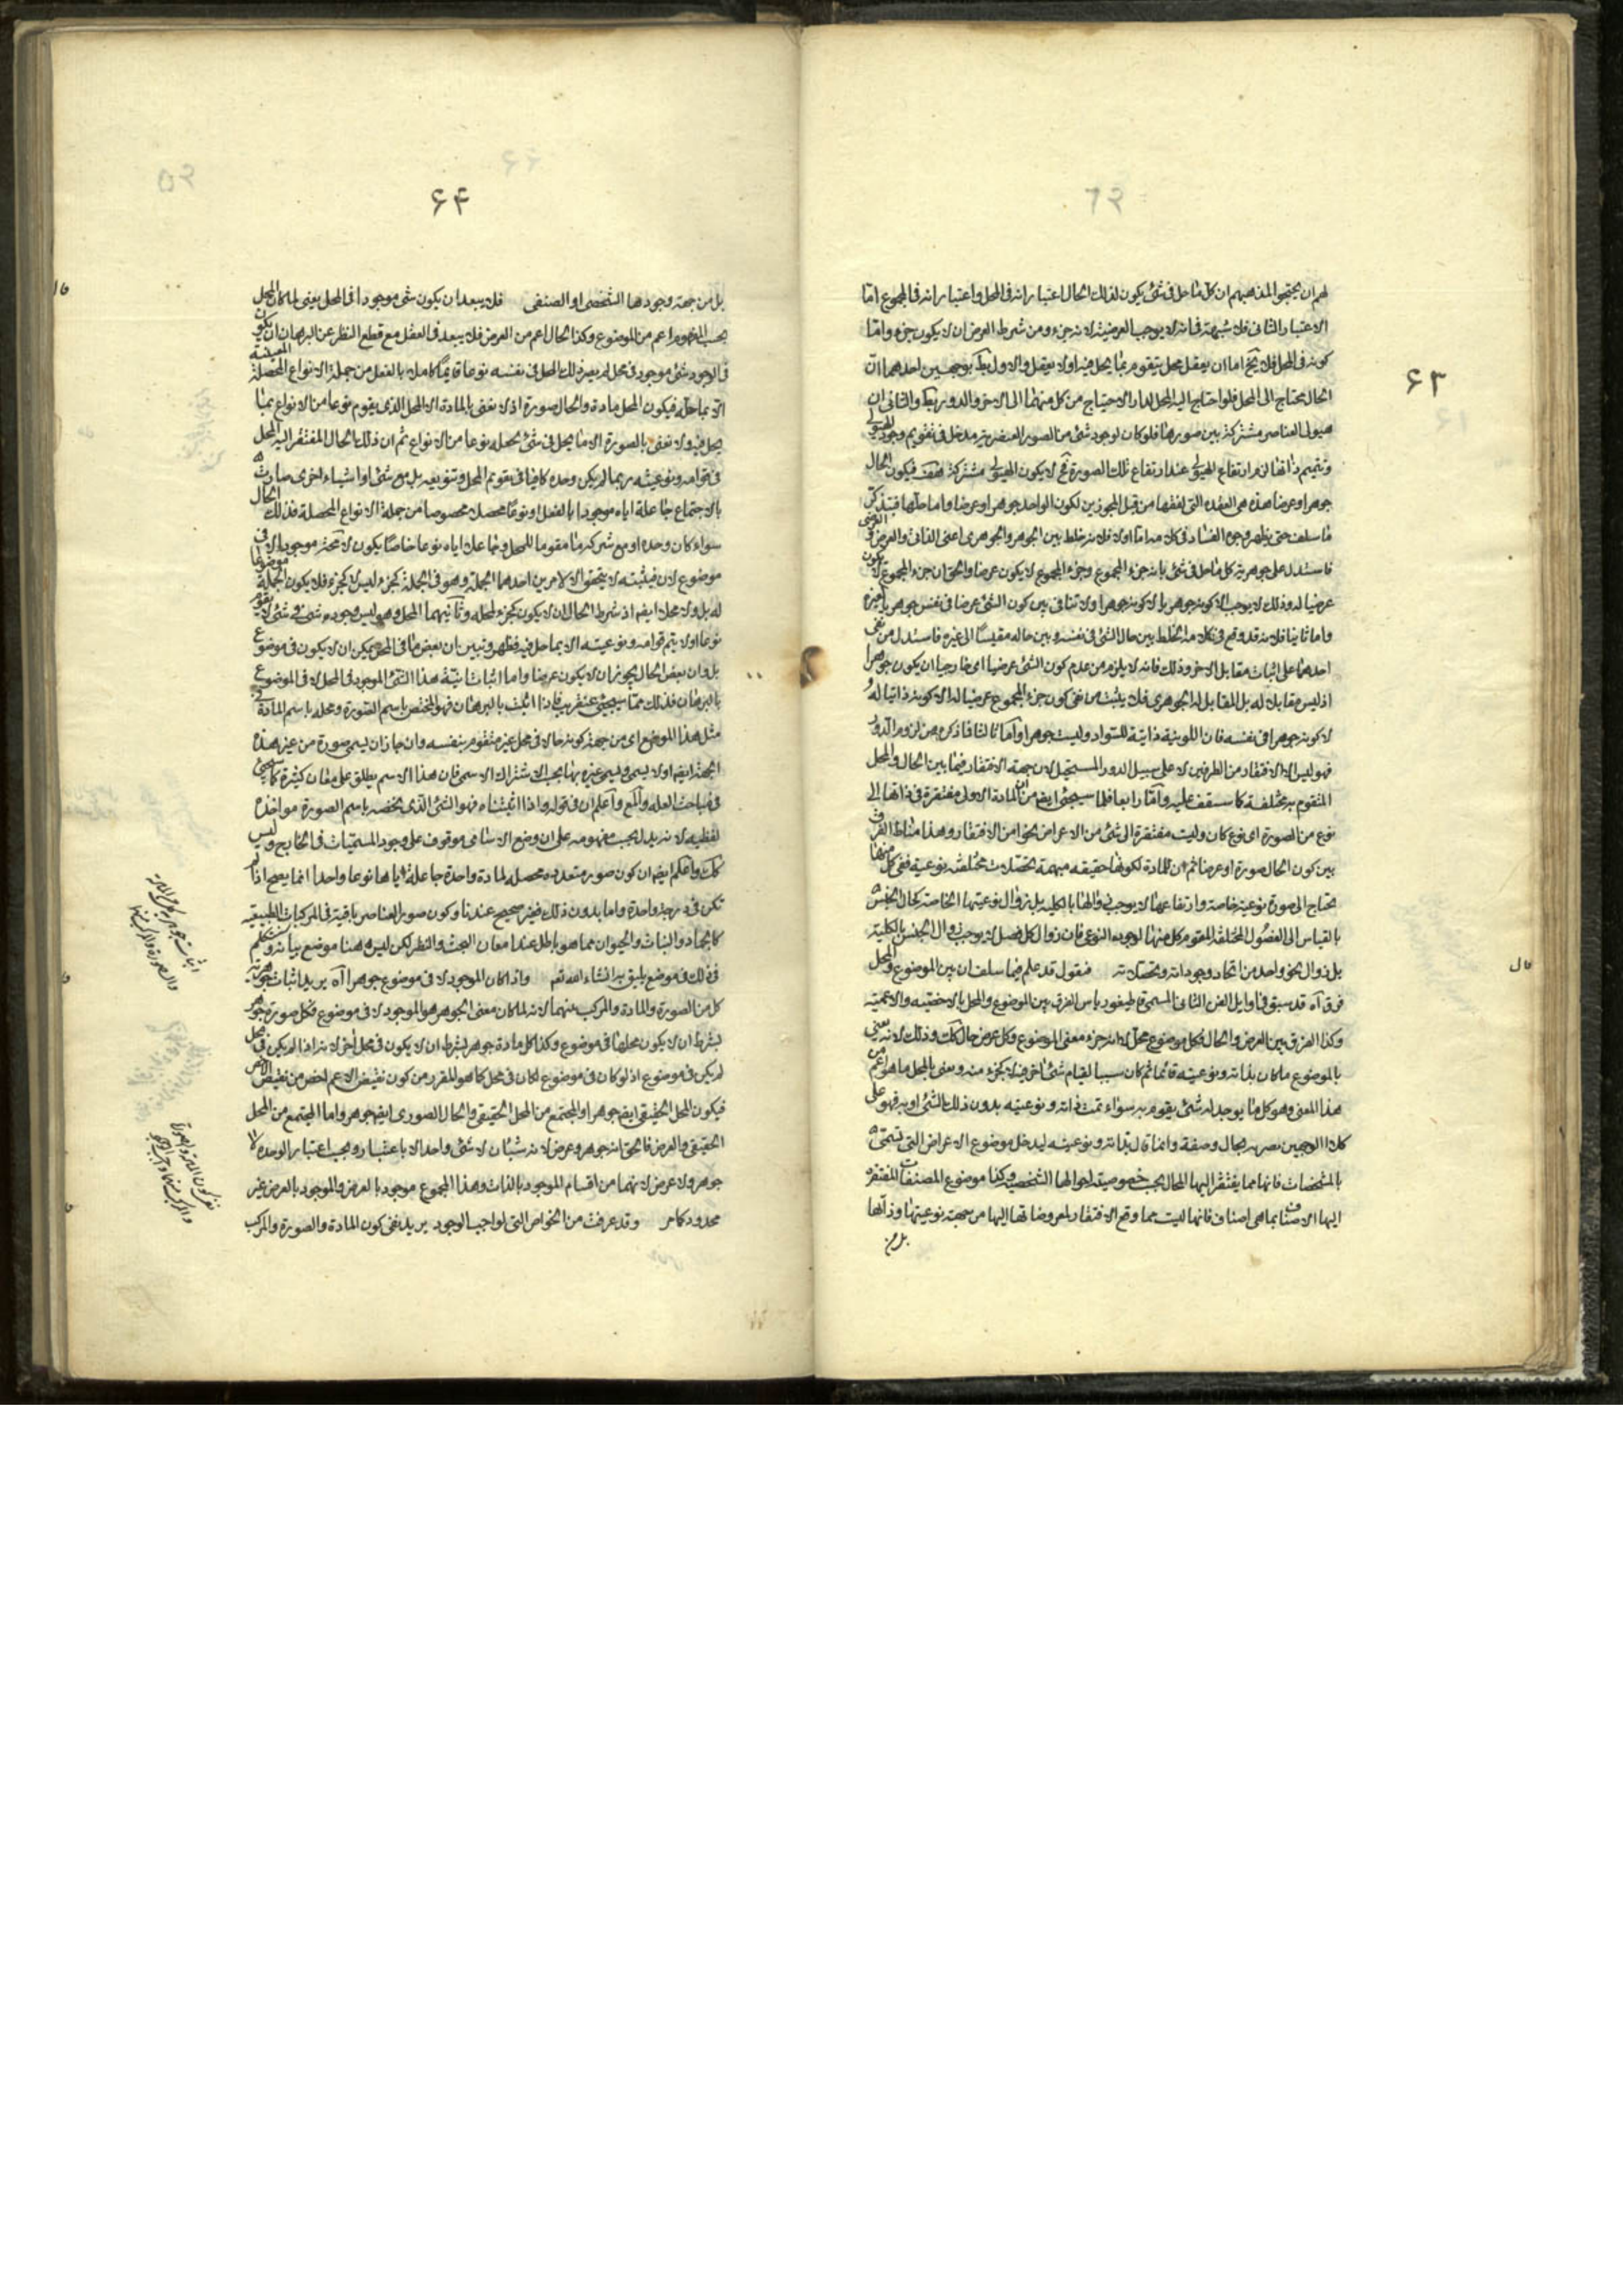 ۶۳
لهم ان يحتجوا لمذهبهم ان كل ما حل فى شئ يكون لذلك الحال اعتبار انه فى المحل واعتبار انه فى المجموع اما
الاعتبار الثانى فلا شبهة فى انه لا يوجب العرضية لانه جزء ومن شرط العرض ان لا يكون جزء واما
كونه فى المحل فلا يخ اما ان يعقل محل يتقوم بما يحل فيه او لا يعقل والاول بط بوجهين احدهما ان
الحال يحتاج الى المحل فلو احتاج اليه المحل لدار الاحتياج من كل منهما الى الاخر والدور بط والثانى ان
هيولى العناصر مشتركة بين صورها فلو كان لوجود شئ من الصور العنصرية مدخل فى تقويم وجود الهيولى
وتتميم ذاتها لزم ارتفاع الهيولى عند ارتفاع تلك الصورة فح لا يكون الهيولى مشتركة هف فيكون الحال
جوهرا وعرضا هذه هى العقدة التى لفقها من قبل المجوزين لكون الواحد جوهرا وعرضا واما حلها فبتذكر
ما سلف حتى يظهر وجوه الفساد فى كلامه اما اولا فلانه خلط بين الجوهر والجوهرى اعنى الذاتى والعرض والعرضى
فاستدل على جوهرية كل ما حل فى شئ بانه جزء المجموع وجزء المجموع لا يكون عرضا والحق ان جزء المجموع لا يكون
عرضيا له وذلك لا يوجب الا كونه جوهريا لا كونه جوهرا ولا تنافى بين كون الشئ عرضا فى نفس جوهريا لغيره
واما ثانيا فلانه قد وقع فى كلامه الخلط بين حال الشئ فى نفسه وبين حاله مقيسا الى غيره فاستدل من نفى
احدهما على اثبات مقابل الاخر وذلك فانه لا يلزم من عدم كون الشئ عرضيا اى خارجيا ان يكون جوهرا
اذ ليس مقابلا له بل المقابل له الجوهرى فلا يثبت من نفى كون جزء المجموع عرضيا له الا كونه ذاتيا له و
لا كونه جوهرا فى نفسه فان اللونية ذاتية للسواد وليست جوهرا واما ثالثا فما ذكره من لزوم الدور
فهو ليس الا الافتقار من الطرفين لا على سبيل الدور المستحيل لان جهة الافتقار فيما بين الحال والمحل
المتقوم به مختلفة كما ستقف عليه واما رابعا فلما سيجئ ايضا من ان المادة الاولى مفتقرة فى ذاتها الى
نوع من الصورة اى نوع كان وليست مفتقرة الى شئ من الاعراض نحوا من الافتقار وهذا مناط الفرق
بين كون الحال صورة او عرضا ثم ان المادة لكونها حقيقة مبهمة تحصلات مختلفة نوعية ففى كل منها
تحتاج الى صورة نوعية خاصة وارتفاعها لا يوجب زوالها بالكلية بل زوال نوعيتها الخاصة كحال الجنس
بالقياس الى الفصول المختلفة المقوم كل منها لوجوده النوعى فان زوال كل فصل لا يوجب زوال الجنس بالكلية
بل زوال نحو واحد من اتحاد وجوداته وتحصلاته فنقول قد علم فيما سلف ان بين الموضوع والمحل
فرق آه قد سبق فى اوايل الفن الثانى المسمى قاطيغورياس الفرق بين الموضوع والمحل بالاخصية والاعمية
وكذا الفرق بين العرض والحال فكل موضوع محل لانه جزء معنى الموضوع وكل عرض حال كك وذلك لانه يعنى
بالموضوع ما كان بذاته ونوعيته قائما ثم كان سببا لقيام شئ اخر فيه لا كجزء منه ويعنى بالمحل ما هو اعم من
هذا المعنى وهو كل ما يوجد له شئ يقوم به سواء تمت ذاته ونوعيته بدون ذلك الشئ او به فهو على
كلا الوجهين يصر به بحال وصفة وانما قال بذاته ونوعيته ليدخل موضوع الاعراض التى تسمى
بالمشخصات فانها مما يفتقر اليها المحال بحسب خصوصية احوالها الشخصية وكذا موضوع المصنفات المفتقرة
اليها الاصناف بما هى اصناف فانها ليست مما وقع الافتقار لمعروضاتها اليها من جهة نوعيتها وذاتها
بل من
قال
۶۴
بل من جهة وجودها الشخصى او الصنفى فلا يبعد ان يكون شئ موجودا فى المحل يعنى لما كان المحل
بحسب المفهوم اعم من الموضوع وكذا الحال اعم من العرض فلا يبعد فى العقل مع قطع النظر عن البرهان ان يكون
فى الوجود شئ موجود فى محل لم يصر ذلك المحل فى نفسه نوعا قائما كاملا بالفعل من جملة الانواع المحصلة المعينة
الا بما حله فيكون المحل مادة والحال صورة اذ لا نعنى بالمادة الا المحل الذى يقوم نوعا من الانواع بما
يحل فيه ولا نعنى بالصورة الا ما يحل فى شئ يحصله نوعا من الانواع ثم ان ذلك الحال المفتقر اليه المحل
فى قوامه ونوعيته ربما لم يكن وحده كافيا فى تقويم المحل وتنويعه بل مع شئ او اشياء اخرى صارت
بالاجتماع جاعلة اياه موجودا بالفعل او نوعا محصلا مخصوصا من جملة الانواع المحصلة فذلك الحال
سواء كان وحده او مع شركة ما مقوما للمحل وجاعلا اياه نوعا خاصا يكون لا محة موجودا لا فى
موضوع لان فيثبته لا يتحقق الا لامرين احدهما الجملة وهو فى الجملة كجزء وليس لا كجزء فلا يكون الجملة موضوعا
له بل ولا محلا ايضا اذ شرط الحال ان لا يكون كجزء لمحله وثانيهما المحل وهو ليس وجوده فيه كوجود شئ فى شئ لا يقوم
نوعا اولا يتم قوامه ونوعيته الا بما حل فيه فظهر وتبين ان بعض ما فى المحل يمكن ان لا يكون فى موضوع
بل وان بعض الحال يجوز ان لا يكون عرضا واما اثبات انية هذا الشئ الموجود فى المحل لا فى الموضوع
بالبرهان فذلك مما سيجئ عنقريب فاذا اثبت بالبرهان فهو المختص باسم الصورة ومحله باسم المادة فى
مثل هذا الموضع اى من جهة كونه حالا فى محل غير متقوم بنفسه وان جاز ان يسمى صورة من غير هذه
الجهة ايضا او لا يسمى وليسمى غيره بها بحسب الاشتراك الاسمى فان هذا الاسم يطلق على معان كثيرة كما سيجئ
فى مباحث العلة والمع واعلم ان فى قوله واذا اثبتناه فهو الشئ الذى يخصه باسم الصورة مواخذة
لفظية لانه يدل بحسب مفهومه على ان وضع الاسامى موقوف على وجود المسميات فى الخارج وليس
كك واعلم ايضا ان كون صور متعددة محصلة لمادة واحدة جاعلة اياها نوعا واحدا انما يصح اذا لم
تكن فى درجة واحدة واما بدون ذلك فغير صحيح عندنا وكون صور العناصر باقية فى المركبات الطبيعية
كالجماد والنبات والحيوان مما هو باطل عند امعان البحث والنظر لكن ليس ههنا موضع بيانه وسنتكلم
فى ذلك فى موضع يليق به انشاء الله تعم واذا كان الموجود لا فى موضوع جوهرا آه يريد اثبات جوهرية
كل من الصورة والمادة والمركب منهما لانه لما كان معنى الجوهر هو الموجود لا فى موضوع فكل صورة جوهر
بشرط ان لا يكون محلها فى موضوع وكذا كل مادة جوهر بشرط ان لا يكون فى محل اخر لانه اذا لم يكن فى محل
لم يكن فى موضوع اذ لو كان فى موضوع لكان فى محل كما هو المقرر من كون نقيض الاعم اخص من نقيض الاخص
فيكون المحل الحقيقى ايضا جوهرا والمجتمع من المحل الحقيقى والحال الصورى ايضا جوهر واما المجتمع من المحل
الحقيقى والعرض فالحق انه جوهر وعرض لانه شيئان لا شئ واحد الا باعتبار وبحسب اعتبار الوحدة لا
جوهر ولا عرض لانهما من اقسام الموجود بالذات وهذا المجموع موجود بالعرض والموجود بالعرض غير
محدود كما مر وقد عرفت من الخواص التى لواجب الوجود يريد نفى كون المادة والصورة والمركب
اثبات جوهرية كل من المادة
والصورة والمركب منهما
نفى كون المادة والصورة
والمركب منهما واجب الوجود